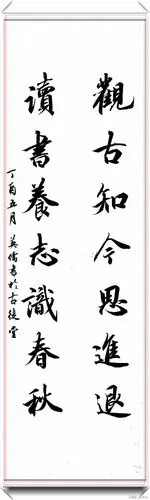 觀古知今思進退
讀書養志識春秋
丁酉五月 書於古德堂